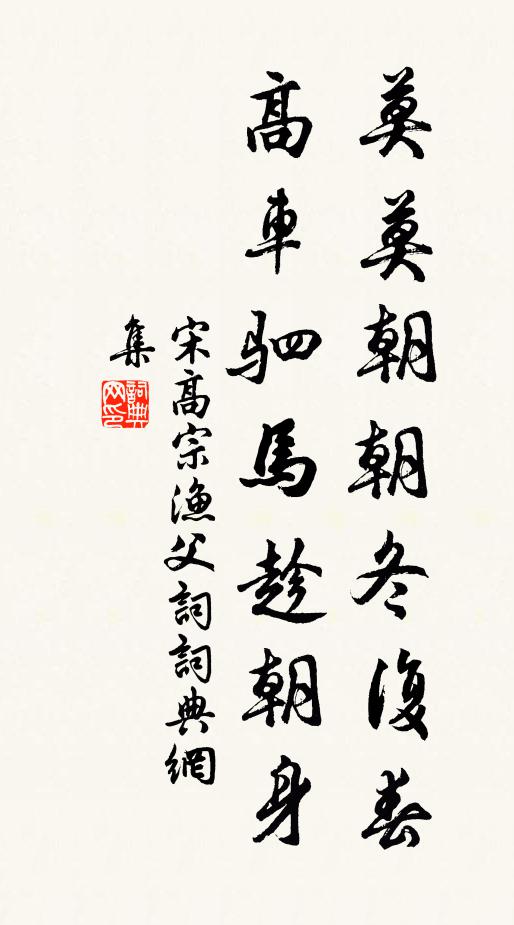 莫莫朝朝冬復春
高車駟馬趁朝身
宋高宗漁父詞詞典網
集
詞典
网印